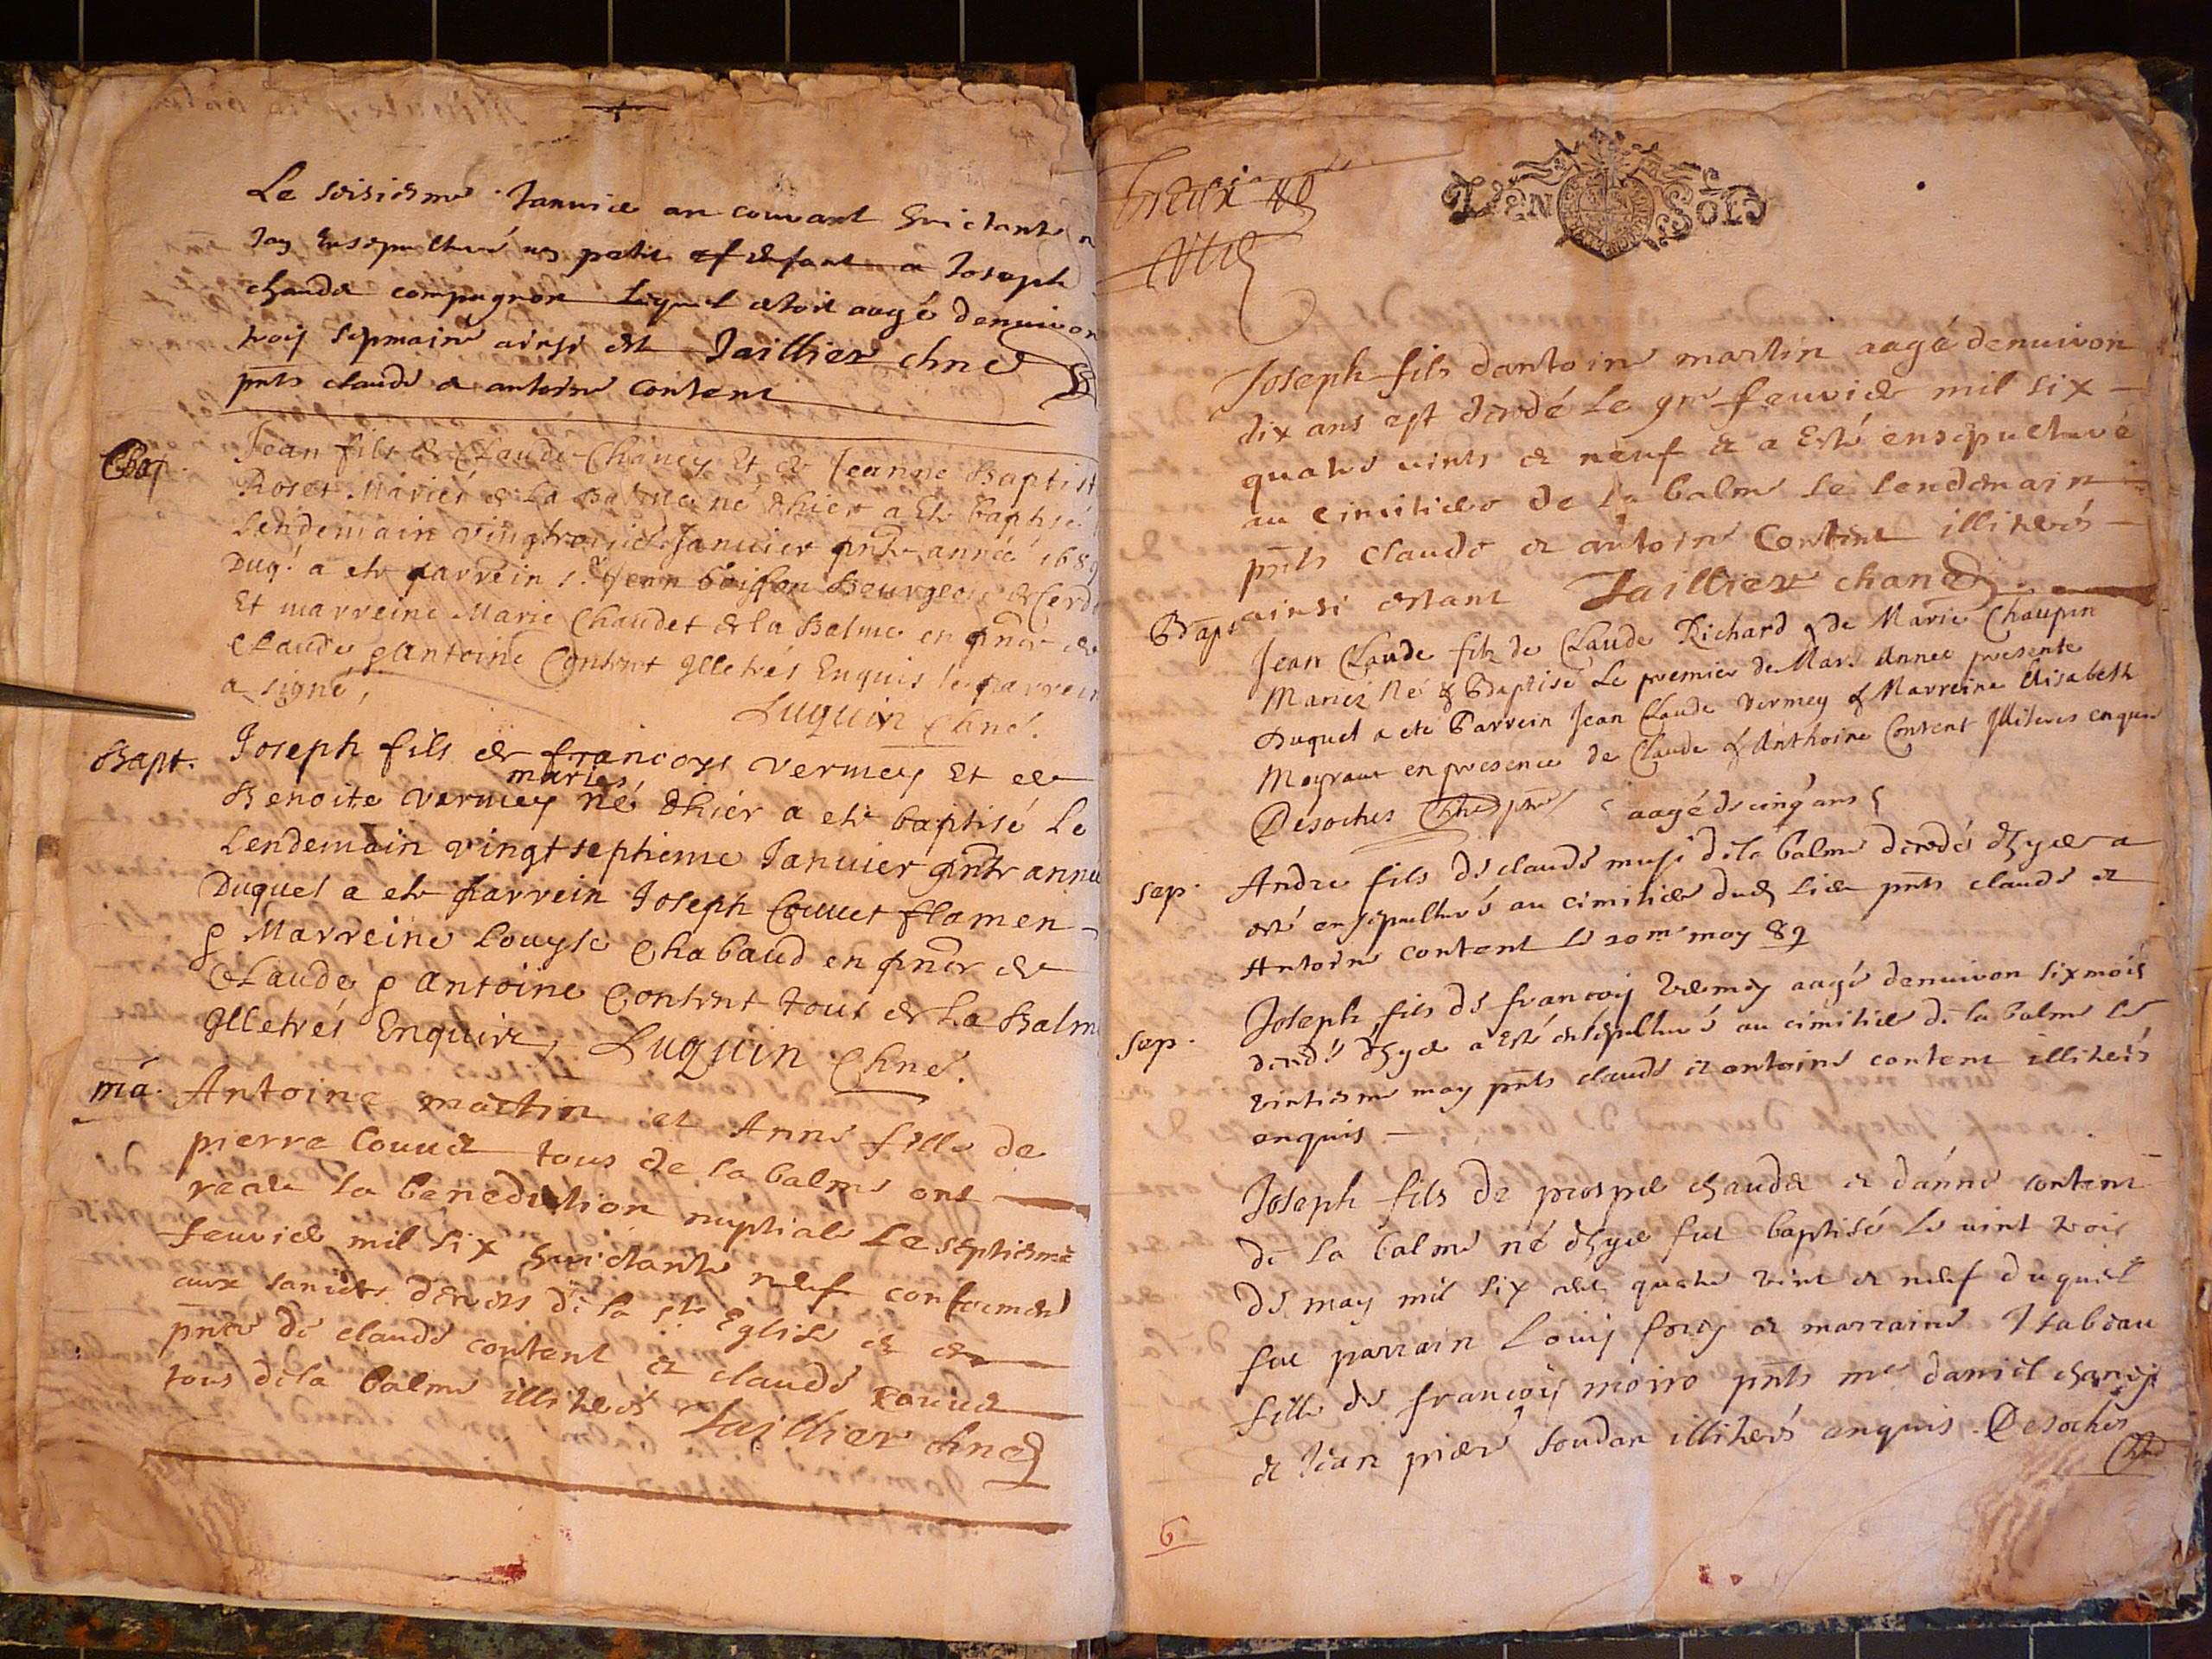 Le seisiesme Janvier an courant huictante n
Jay ensepulturé un petit enfant a Joseph
chaudet compagnon lequel estoit aagé denuiron
trois sepmaine ainsi est Jaillier chne
pnts claude et antoine Content
Bap.
Jean fils de Claude Chaney Et de Jeanne Baptist
Roset Mariés de La Balme né dhier a ete baptisé
Lendemain vingtroisie Janvier pnte année 1689
Duql a ete parrein Sr Jean boisson Bourgeois de Cerd
Et marreine Marie Chaudet de la Balme en pnce de
Claude & Antoine Content Illetrés Enquis le parrein
a signé,
Luquin Chne.
Bapt.
Joseph fils de francoys vermey Et de
maries
Benoite vermey né dhier a ete baptisé Le
Lendemain vingtseptieme Janvier pnte anné
Duquel a ete parrein Joseph Couuet flamen
& Marreine Louyse Chabaud en pnce de
Claude & Antoine Content tous de La Balm
Illetrés Enquis, Luquin Chne.
ma.
Antoine martin et Anne fille de
pierre Couuet tous de la balme ont
receu la benediction nuptiale Le septiesme
feuvier mil six huictante neuf conformemt
aux sanictes decrets de la ste Eglise et en
pnce de claude content et claude couuet
tous de la balme illiterés Jaillier chne
Treize den
UN DEN SOLD
Joseph fils dantoine martin aagé denuiron
dix ans est decedé Le 9me feuvier mil six
quatre vints et neuf et a Esté ensepulturé
au cimitiere de la balme le lendemain
pnts claude et antoine Content illiterés
ainsi estant Jaillier chane
Bap.
Jean Claude filz de Claude Richard & de Marie Chaupin
Mariez Né & Baptisé Le premier de Mars Année presente
Duquel a eté Parrein Jean Claude Vermey & Marreine Elisabeth
Meyraut en presence de Claude & Anthoine Content Illiteres enquis
Desoches Chne
aagé de cinq ans
sep.
Andre fils de claude musi de la balme decedé dhyer a
esté ensepulturé au cimitiere dud lieu pnts claude et
Antoine content le 20me may 89
sep.
Joseph fils de francoy Vermey aagé denuiron six mois
decedé dhyer a Esté ensepulturé au cimitiere de la balme le
vintiesme may pnts claude et antoine content illiterés
enquis
Joseph fils de prosper chaudet et danne content
de la balme né dhyer fut baptisé le vint trois
de may mil six cent quatre vint et neuf duquel
fut parrain Louy forey et marraine Isabeau
fille de francoy moiro pnts me daniel chaney
et Jean pierre soudan illiterés enquis. Desoches
Chne
6